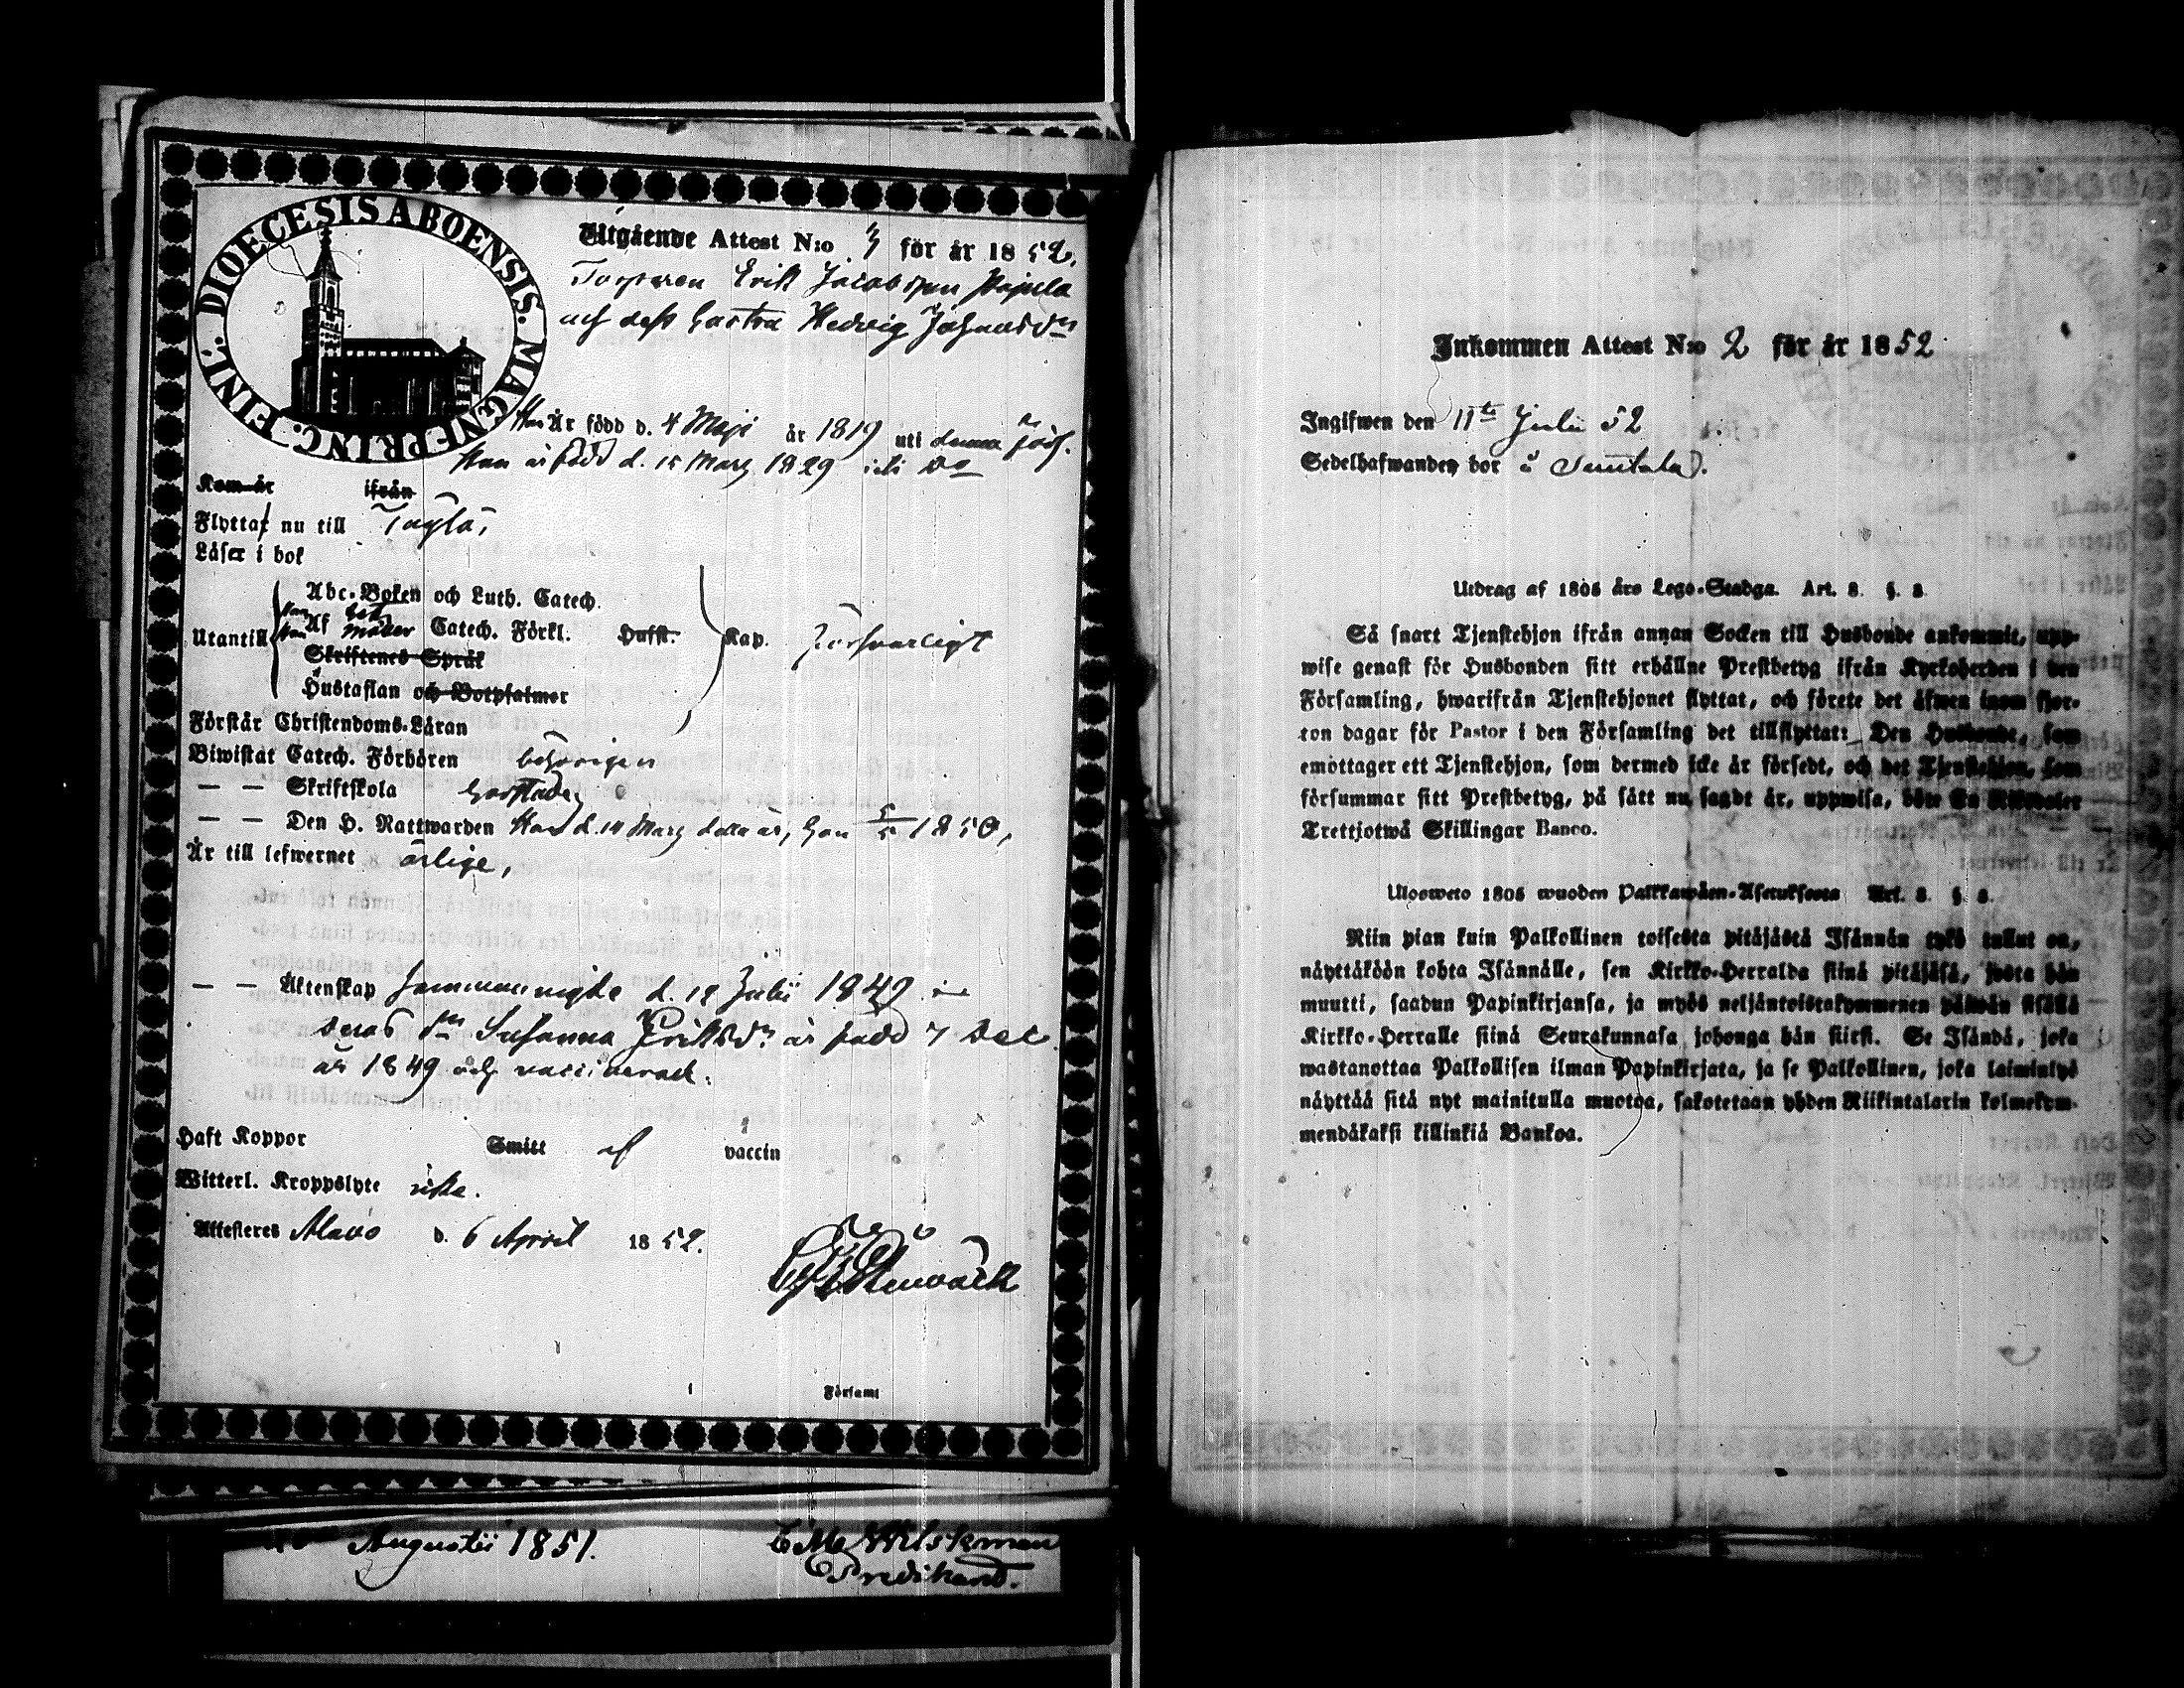 DIOECESIS ABOENSIS. MAGNE PRINC. FINL.
Utgående Attest N:o 3 för år 1852.
Torparen Erik Jacobsson Pajula
och dess hustru Hedvig Johansdr
Han Är född d. 4 Maji år 1819 uti denna förs.
Hon är född d. 15 Mars 1829 uti Do
Kom är ifrån
Flyttar nu till
Läser i bok
Abc-Boken och Luth. Catech.
Utantill Af Möller Catech. Förkl. Hufst. Kap. försvarligt
Skriftenes Språk
Hustaflan och Botpsalmer
Förstår Christendoms-Läran
Biwistat Catech. Förhören behörigen
— — Skriftskola
— — Den H. Nattwarden Han d. 14 Mars detta år, hon 1850,
Är till lefwernet ärlige,
— — Äktenskap sammanvigde d. 18 Julii 1849
deras dr Susanna Eriksdr är född 7 Dec.
år 1849 och vaccinerad.
Haft Koppor Smitt af vaccin
Witterl. Kroppslyte icke.
Attesteras Alavo d. 6 April 1852.
Församl
Augustii 1851.
Predikant.
Inkommen Attest N:o 2 för år 1852
Ingifwen den 11te Julii 52
Sedelhafwanden bor å
Utdrag af 1805 års Lego-Stadga. Art. 8. §. 8.
Så snart Tjenstehjon ifrån annan Socken till Husbonde ankommit, upp-
wise genast för Husbonden sitt erhållne Prestbetyg ifrån Kyrkoherden i den
Församling, hwarifrån Tjenstehjonet flyttat, och förete det äfwen inom fjor-
ton dagar för Pastor i den Församling det tillflyttat: Den Husbonde, som
emottager ett Tjenstehjon, som dermed icke är försedt, och det Tjenstehjon, som
försummar sitt Prestbetyg, på sätt nu sagdt är, uppwisa, böte En Riksdaler
Trettjotwå Skillingar Banco.
Ulosweto 1805 wuoden Palkkawäen-Asetuksesta Art. 8. §. 8.
Niin pian kuin Palkollinen toisesta pitäjästä Isännän tykö tullut on,
näyttäköön kohta Isännälle, sen Kirkko-Herralda siinä pitäjäsä, josta hän
muutti, saadun Papinkirjansa, ja myös neljäntoistakymmenen päiwän sisällä
Kirkko-Herralle siinä Seurakunnasa johonga hän siirsi. Se Isändä, joka
wastanottaa Palkollisen ilman Papinkirjata, ja se Palkollinen, joka laiminlyö
näyttää sitä nyt mainitulla muotoa, sakotetaan yhden Riikintalarin kolmekym-
mendäkaksi killinkiä Bankoa.